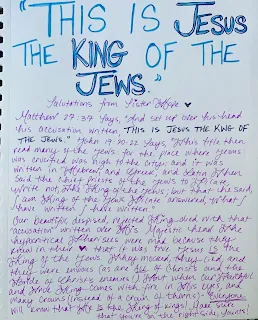 "THIS IS JESUS
THE KING OF THE
JEWS."
Salutations from Sister Hope ♥
Matthew 27:37 says, "And set up over his head
his accusation written, THIS IS JESUS THE KING OF
THE JEWS." John 19:20-22 says, "This title then
read many of the Jews for the place where Jesus
was crucified was nigh to the city: and it was
written in Hebrew, and Greek, and Latin. Then
said the chief priests of the Jews to Pilate
Write not, The King of the Jews; but that he said,
I am King of the Jews. Pilate answered, What I
have written I have written."
Our beautiful despised, rejected King died with that
"accusation" written over His Majestic head. The
hypocritical Pharisees were mad because they
knew in their ♥ that it was true. Jesus IS the
King of the Jews. They mocked, they lied, and
they were envious (as are all of Christ's and the
Bride of Christ's enemies). When our Faithful
and True King comes with fire in His eyes, and
many crowns (instead of a crown of thorns) Everyone
will know that He is the King of kings! Make sure
that you're on the right side, Saints!